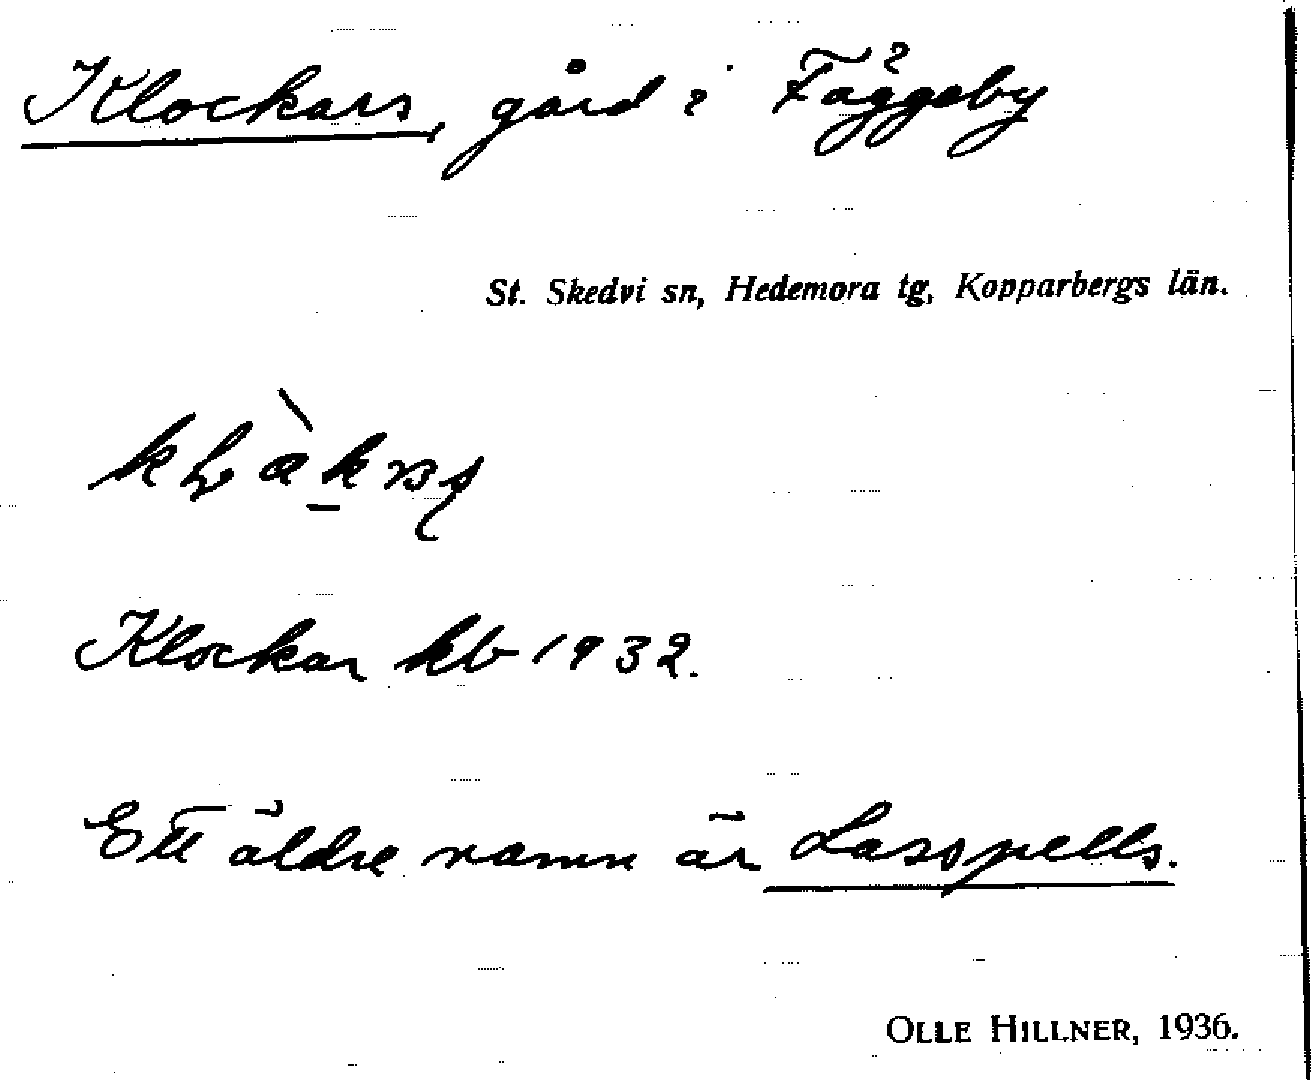 Klockars, gård i Fäggeby
St. Skedvi sn, Hedemora tg, Kopparbergs län.
Klockar kb 1932.
Ett äldre namn är Lasspells.
OLLE HILLNER, 1936.